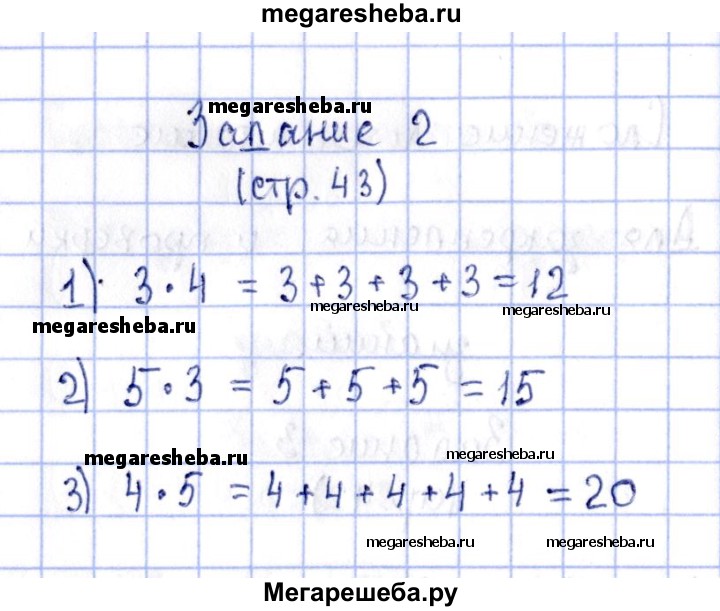 megaresheba.ru
megaresheba.ru
Задание 2
(стр. 43)
1) 3 · 4 = 3 + 3 + 3 + 3 = 12
megaresheba.ru megaresheba.ru megaresheba.ru
2) 5 · 3 = 5 + 5 + 5 = 15
megaresheba.ru megaresheba.ru
3) 4 · 5 = 4 + 4 + 4 + 4 + 4 = 20
megaresheba.ru megaresheba.ru
Мегарешеба.ру